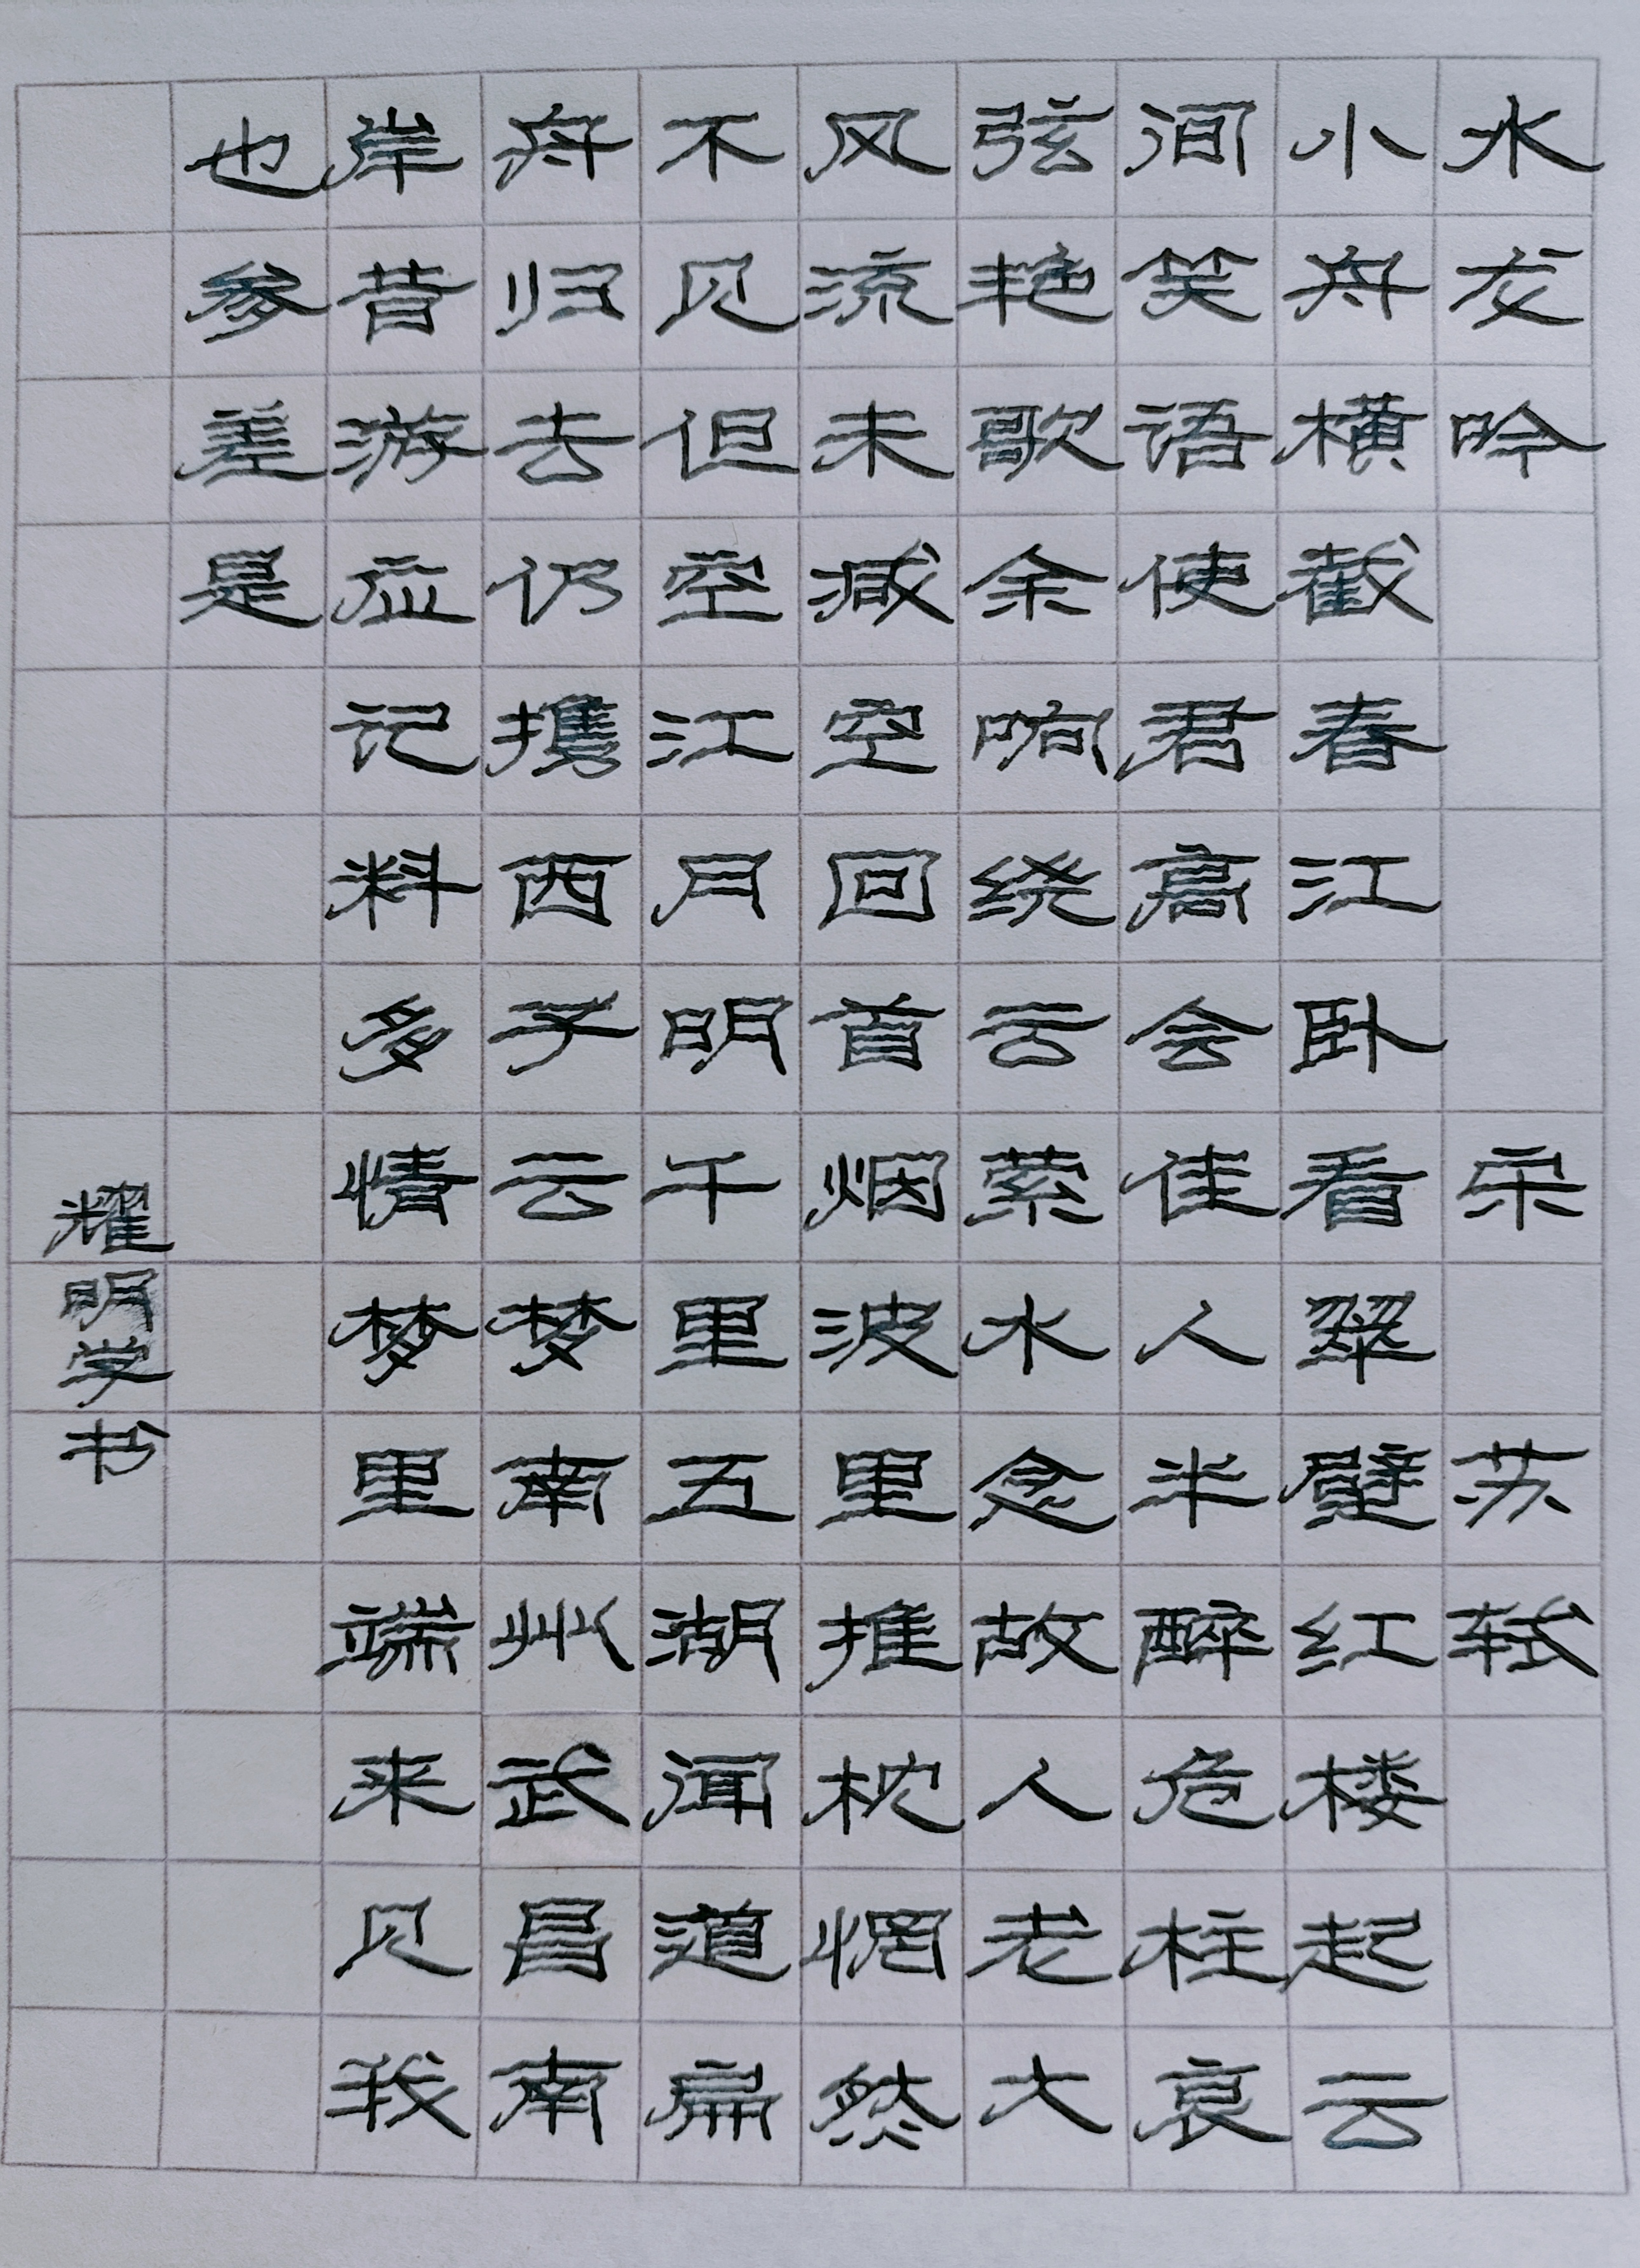 水龙吟 宋 苏轼
小舟横截春江卧看翠壁红楼起云
间笑语使君高会佳人半醉危柱哀
弦艳歌余响绕云萦水念故人老大
风流未减空回首烟波里推枕惘然
不见但空江月明千里五湖闻道扁
舟归去仍携西子云梦南州武昌南
岸昔游应记料多情梦里端来见我
也参差是
耀明学书